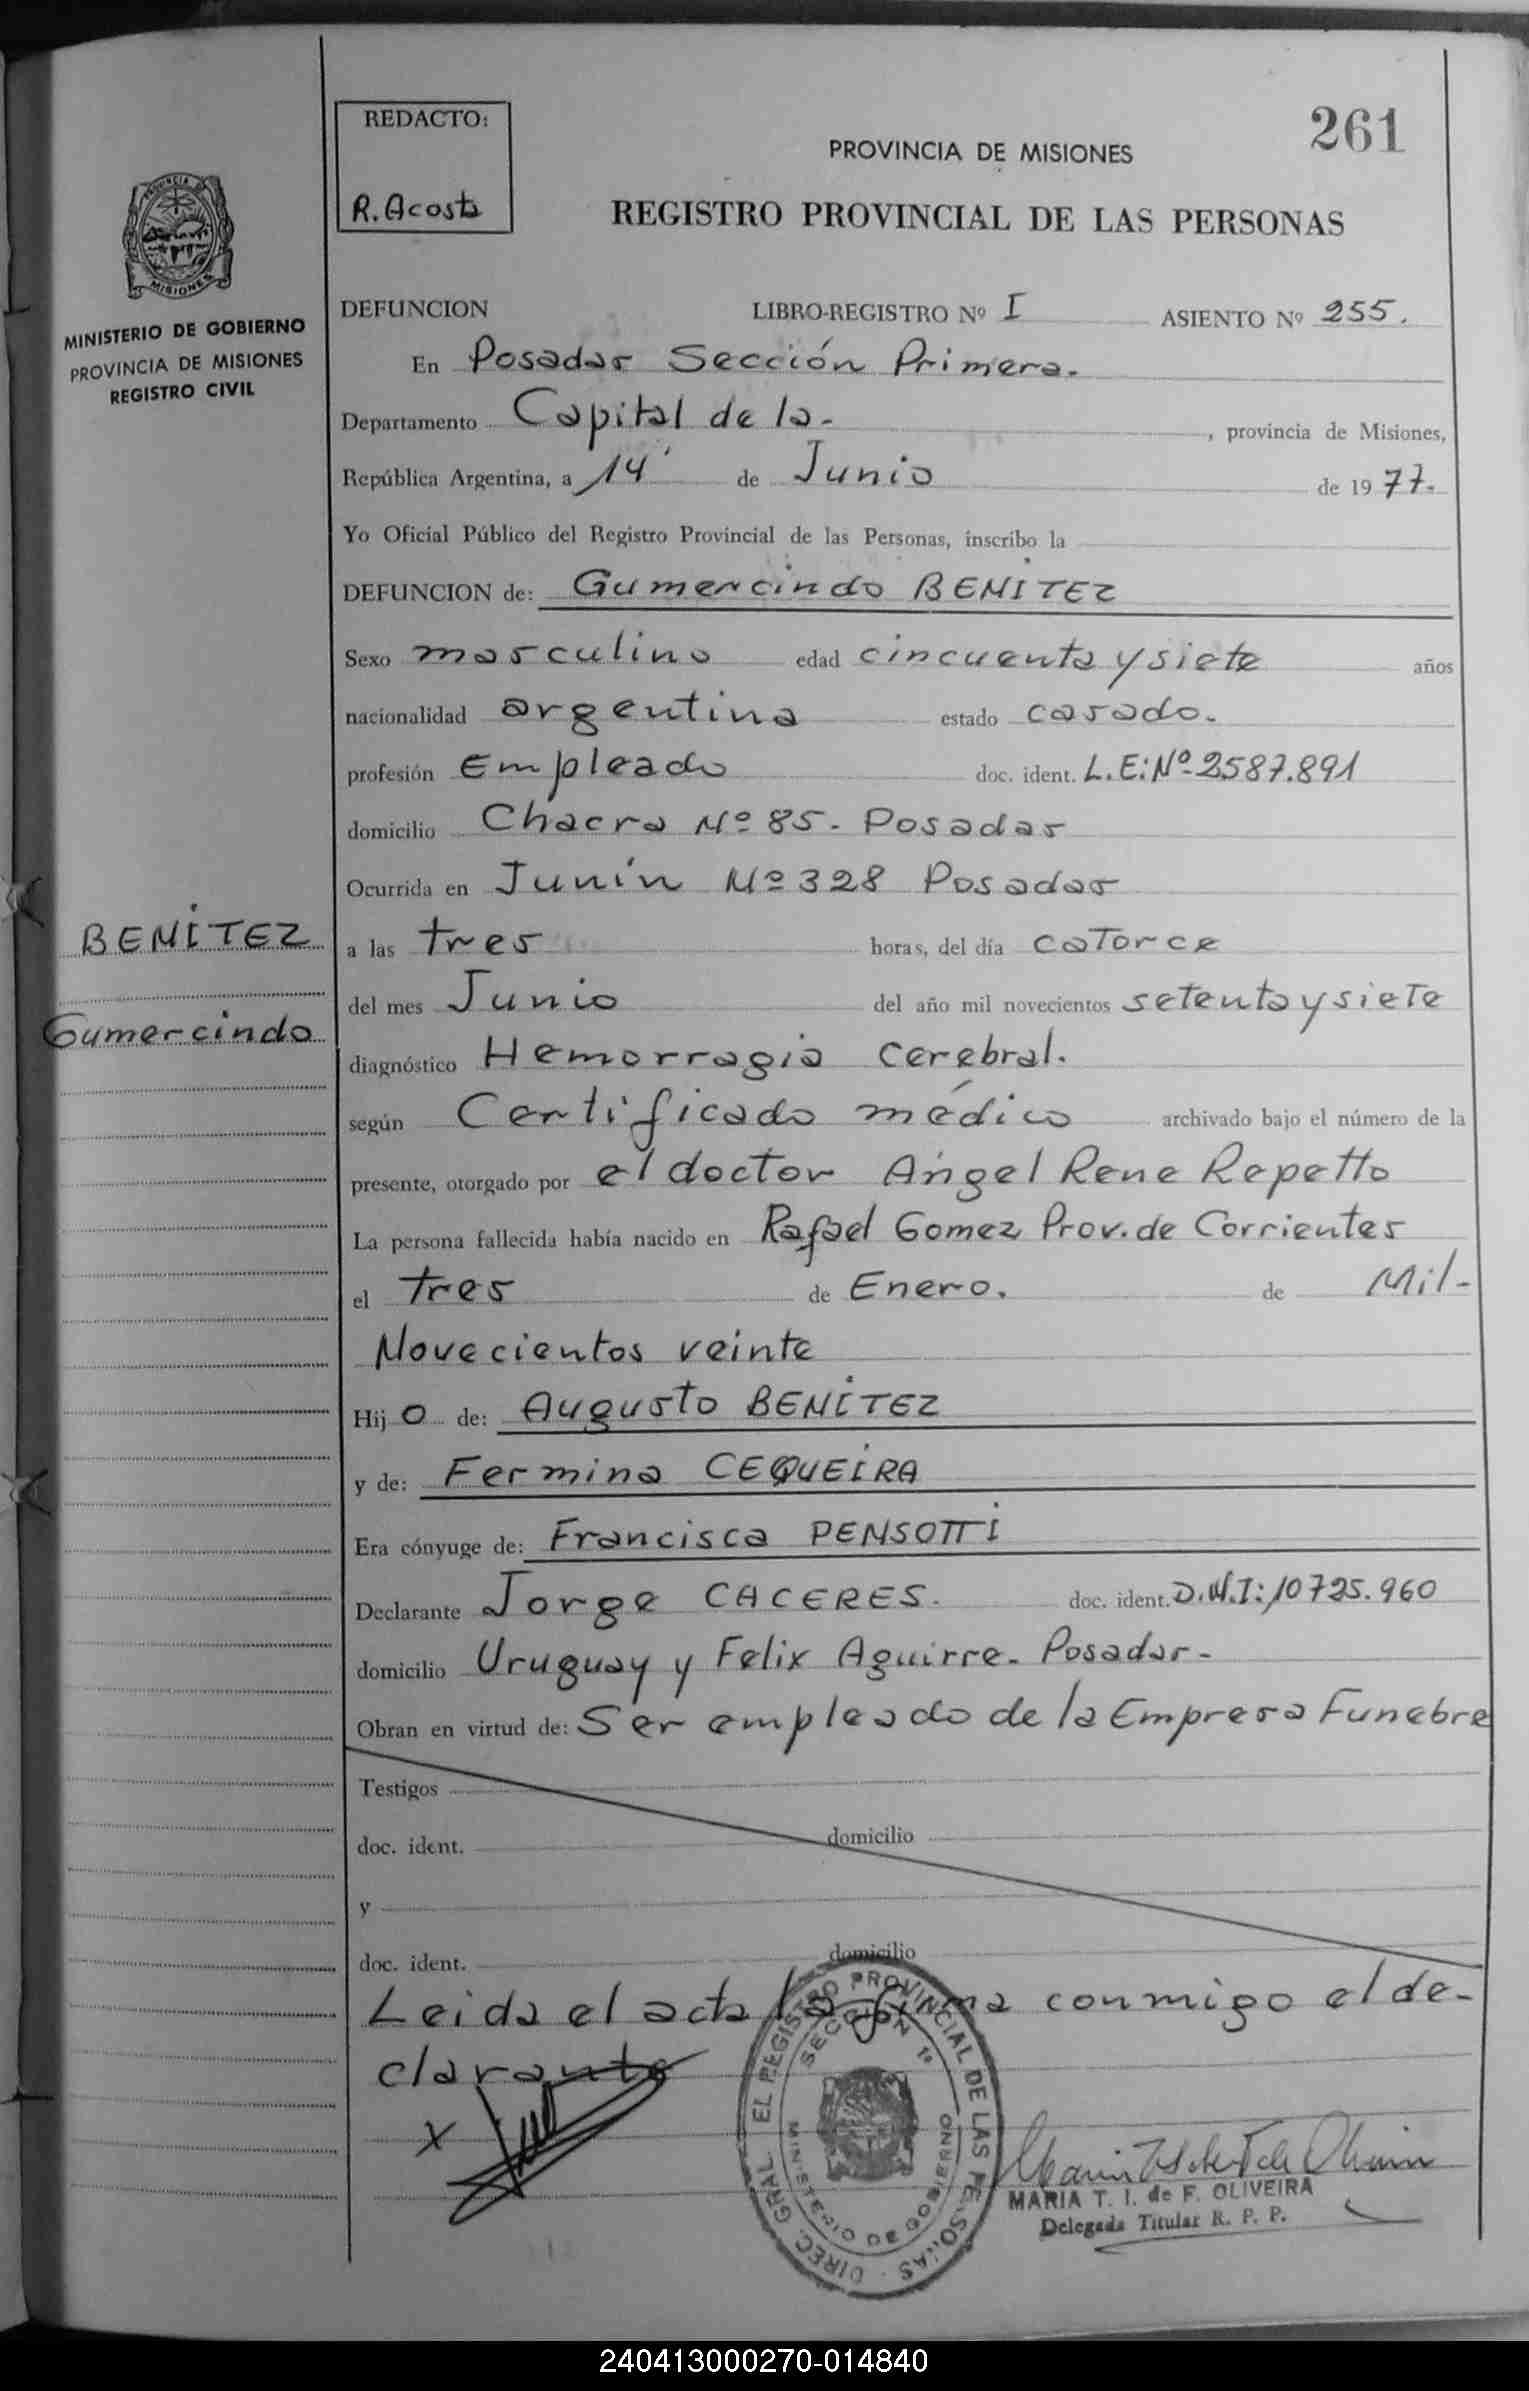 261
REDACTO:
R. Acosta
PROVINCIA DE MISIONES
REGISTRO PROVINCIAL DE LAS PERSONAS
PROVINCIA DE
MISIONES
MINISTERIO DE GOBIERNO
PROVINCIA DE MISIONES
REGISTRO CIVIL
DEFUNCION LIBRO-REGISTRO Nº I ASIENTO Nº 255.
En Posadas Sección Primera.
Departamento Capital de la- , provincia de Misiones,
República Argentina, a 14 de Junio de 1977.-
Yo Oficial Público del Registro Provincial de las Personas, inscribo la
DEFUNCION de: Gumercindo BENITEZ
Sexo masculino edad cincuenta y siete años
nacionalidad argentina estado casado.
profesión Empleado doc. ident. L.E: Nº 2587.891
domicilio Chacra Nº 85. Posadas
Ocurrida en Junín Nº 328 Posadas
BENÍTEZ
Gumercindo
a las tres horas, del día catorce
del mes Junio del año mil novecientos setenta y siete
diagnóstico Hemorragia cerebral.
según Certificado médico archivado bajo el número de la
presente, otorgado por el doctor Angel Rene Repetto
La persona fallecida había nacido en Rafael Gomez Prov. de Corrientes
el tres de Enero. de Mil-
Novecientos veinte
Hijo de: Augusto BENÍTEZ
y de: Fermina CEQUEIRA
Era cónyuge de: Francisca PENSOTTI
Declarante Jorge CACERES. doc. ident. D.N.I: 10725.960
domicilio Uruguay y Felix Aguirre. Posadas-
Obran en virtud de: Ser empleado de la Empresa Funebre
Testigos
doc. ident. domicilio
y
doc. ident. domicilio
Leida el acta la firma conmigo el de-
clarante
X
DIREC. GRAL. EL REGISTRO PROVINCIAL DE LAS PERSONAS
SECCION 1ª
MINISTERIO DE GOBIERNO
MARIA T. I. de F. OLIVEIRA
Delegada Titular R. P. P.
240413000270-014840